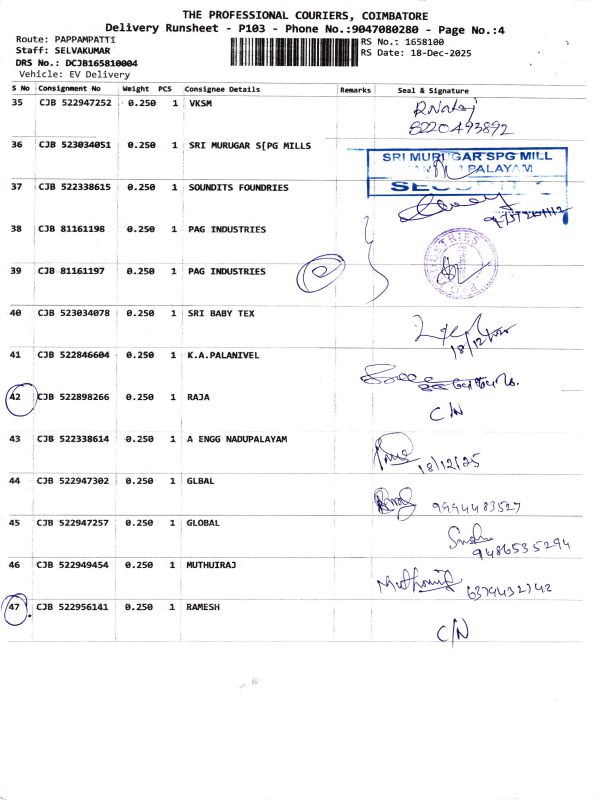 THE PROFESSIONAL COURIERS, COIMBATORE
Delivery Runsheet - P103 - Phone No.:9047080280 - Page No.:4
Route: PAPPAMPATTI
Staff: SELVAKUMAR
DRS No.: DCJB165810004
Vehicle: EV Delivery
RS No.: 1658100
RS Date: 18-Dec-2025
S No Consignment No Weight PCS Consignee Details Remarks Seal & Signature
35 CJB 522947252 0.250 1 VKSM
8220493892
36 CJB 523034051 0.250 1 SRI MURUGAR S[PG MILLS
SRI MURUGAR SPG MILL
PALAYAM
37 CJB 522338615 0.250 1 SOUNDITS FOUNDRIES
38 CJB 81161198 0.250 1 PAG INDUSTRIES
39 CJB 81161197 0.250 1 PAG INDUSTRIES
40 CJB 523034078 0.250 1 SRI BABY TEX
41 CJB 522846604 0.250 1 K.A.PALANIVEL
42 CJB 522898266 0.250 1 RAJA
C/N
43 CJB 522338614 0.250 1 A ENGG NADUPALAYAM
18/12/25
44 CJB 522947302 0.250 1 GLBAL
9994483527
45 CJB 522947257 0.250 1 GLOBAL
9486535294
46 CJB 522949454 0.250 1 MUTHUIRAJ
47 CJB 522956141 0.250 1 RAMESH
C/N